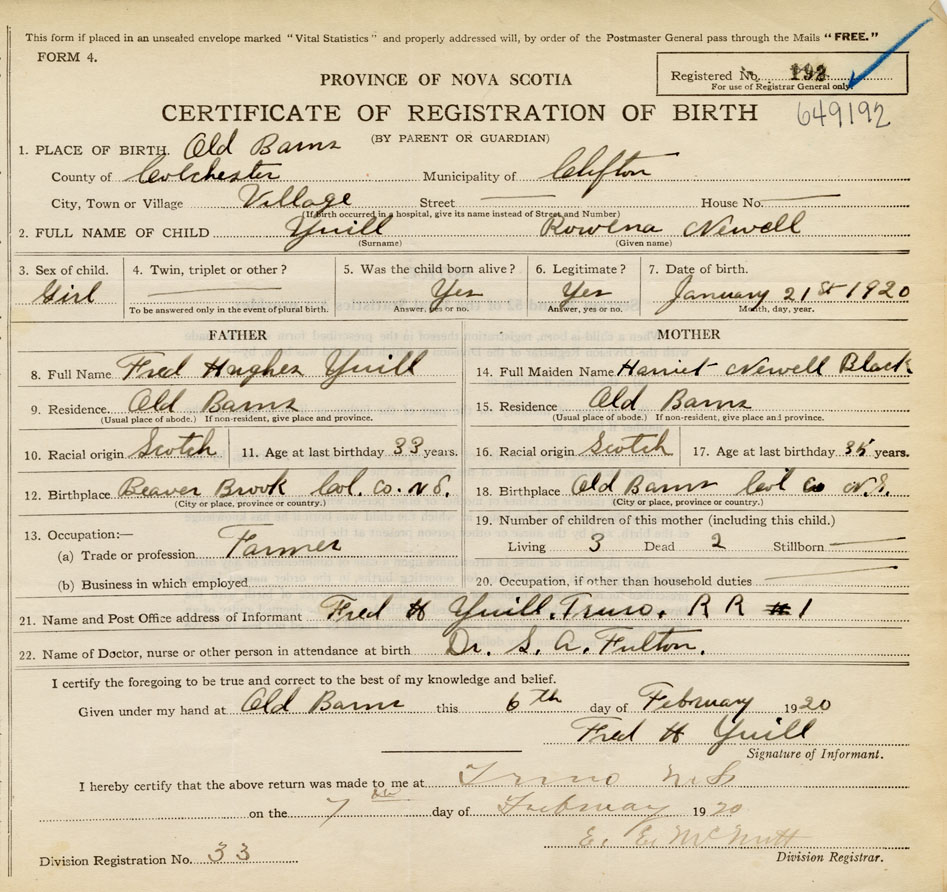 This form if placed in an unsealed envelope marked "Vital Statistics" and properly addressed will, by order of the Postmaster General pass through the Mails "FREE."
FORM 4.
Registered No. 192
For use of Registrar General only.
PROVINCE OF NOVA SCOTIA
CERTIFICATE OF REGISTRATION OF BIRTH
649192
(BY PARENT OR GUARDIAN)
1. PLACE OF BIRTH. Old Barns
County of Colchester Municipality of Clifton
City, Town or Village Village Street House No.
(If birth occurred in a hospital, give its name instead of Street and Number)
2. FULL NAME OF CHILD Yuill Rowena Newell
(Surname) (Given name)
3. Sex of child. 4. Twin, triplet or other? 5. Was the child born alive? 6. Legitimate? 7. Date of birth.
Girl Yes Yes January 21st 1920
To be answered only in the event of plural birth. Answer, yes or no. Answer, yes or no. Month, day, year.
FATHER MOTHER
8. Full Name Fred Hughes Yuill 14. Full Maiden Name Harriet Newell Black
9. Residence. Old Barns 15. Residence Old Barns
(Usual place of abode.) If non-resident, give place and province. (Usual place of abode.) If non-resident, give place and province.
10. Racial origin Scotch 11. Age at last birthday 33 years. 16. Racial origin Scotch 17. Age at last birthday 35 years.
12. Birthplace Beaver Brook Col. Co. N S. 18. Birthplace Old Barns Col Co N.S.
(City or place, province or country.) (City or place, province or country.)
13. Occupation:— 19. Number of children of this mother (including this child.)
(a) Trade or profession Farmer Living 3 Dead 2 Stillborn
(b) Business in which employed 20. Occupation, if other than household duties
21. Name and Post Office address of Informant Fred H Yuill, Truro. R R #1
22. Name of Doctor, nurse or other person in attendance at birth Dr. S. A. Fulton.
I certify the foregoing to be true and correct to the best of my knowledge and belief.
Given under my hand at Old Barns this 6th day of February 1920
Fred H Yuill
Signature of Informant.
I hereby certify that the above return was made to me at Truro N.S
on the 7th day of February 1920
E. E. McNutt
Division Registration No. 33 Division Registrar.